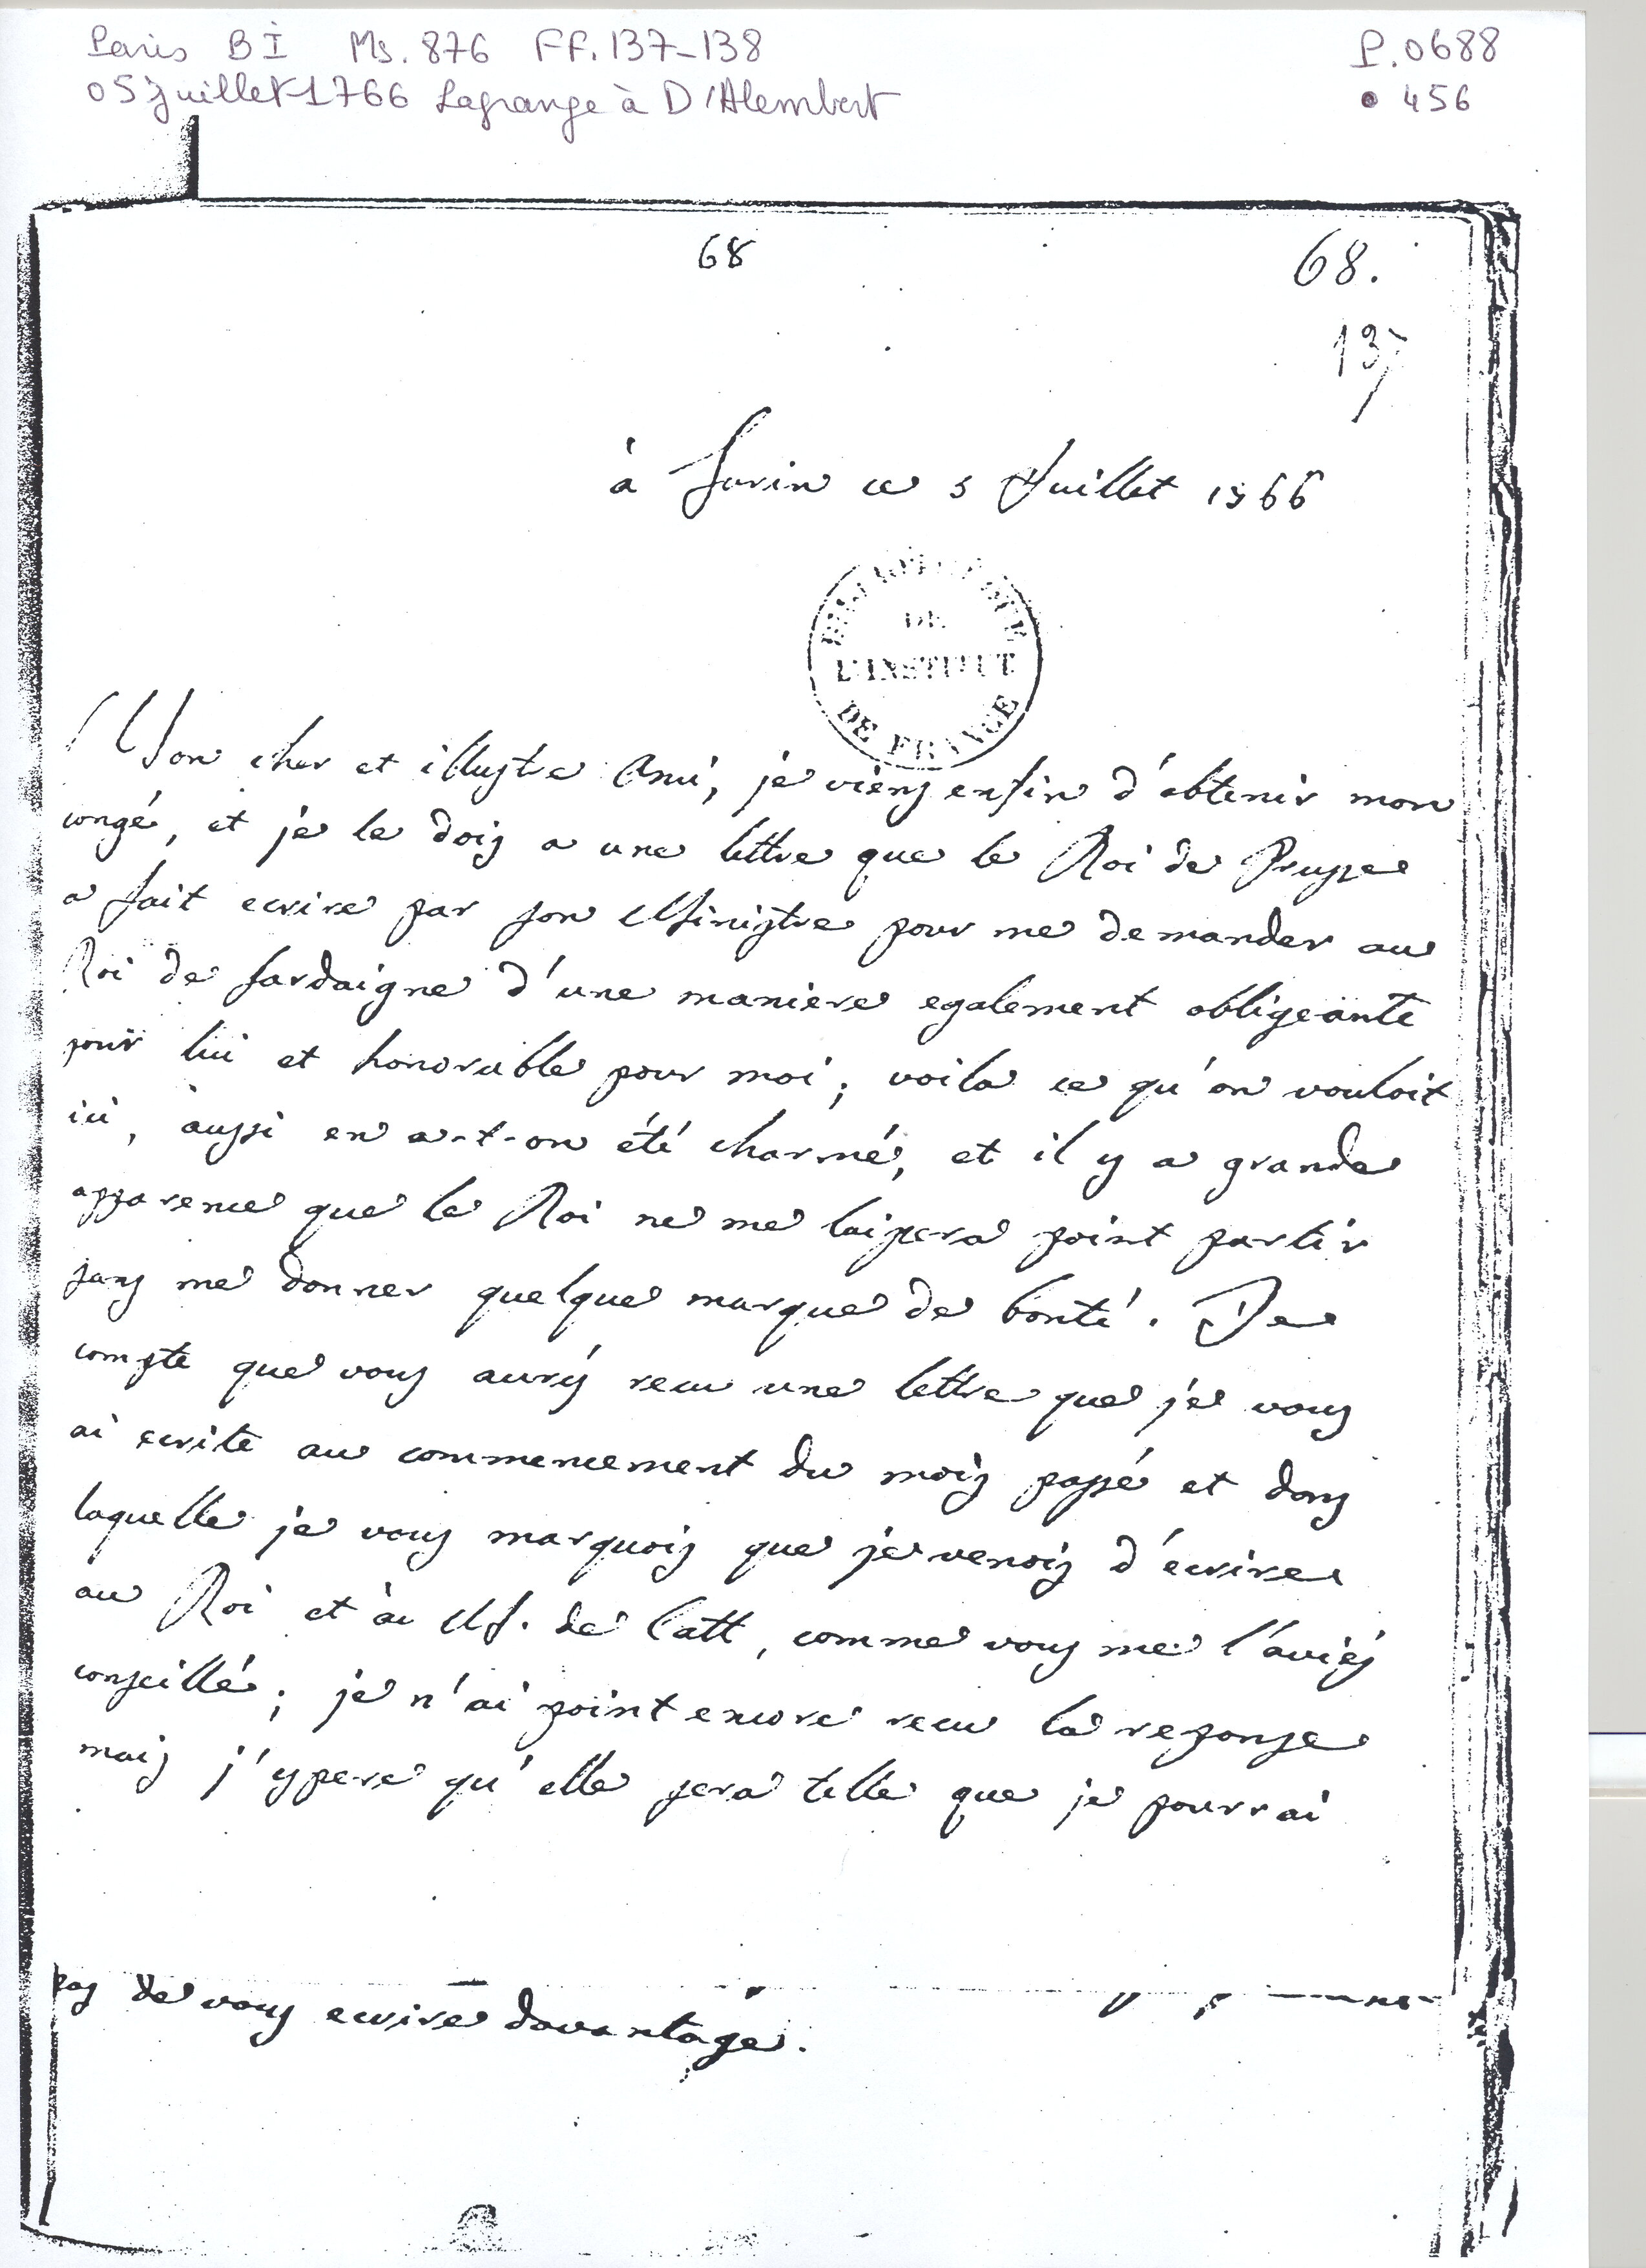 Paris BI Ms. 876 FF. 137-138 P. 0688
05 juillet 1766 Lagrange à D'Alembert • 456
68 68.
137
à Turin ce 5 Juillet 1766
BIBLIOTHEQUE
DE
L'INSTITUT
DE FRANCE
Mon cher et illustre Ami, je viens enfin d'obtenir mon
congé, et je le dois a une lettre que le Roi de Prusse
a fait ecrire par son Ministre pour me demander au
Roi de Sardaigne d'une maniere egalement obligeante
pour lui et honorable pour moi; voila ce qu'on vouloit
ici, aussi en a-t-on été charmé, et il y a grande
apparence que le Roi ne me laissera point partir
sans me donner quelque marque de bonté. Je
compte que vous aurés recu une lettre que je vous
ai ecrite au commencement du mois passé et dans
laquelle je vous marquois que je venois d'écrire
au Roi et à M. de Catt, comme vous me l'aviés
conseillé; je n'ai point encore recu la reponse
mais j'espere qu'elle sera telle que je pourrai
pas de vous ecrire davantage.